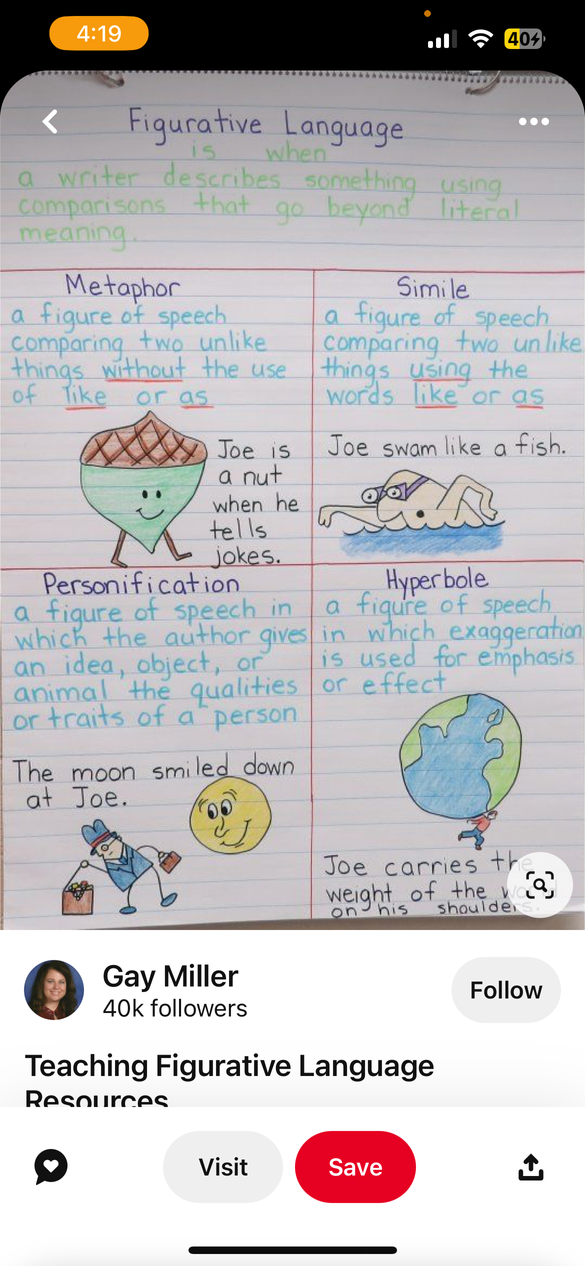 4:19
40
Figurative Language
is when
a writer describes something using
comparisons that go beyond literal
meaning.
Metaphor
a figure of speech
comparing two unlike
things without the use
of like or as
Joe is
a nut
when he
tells
jokes.
Simile
a figure of speech
comparing two unlike
things using the
words like or as
Joe swam like a fish.
Personification
a figure of speech in
which the author gives
an idea, object, or
animal the qualities
or traits of a person
The moon smiled down
at Joe.
Hyperbole
a figure of speech
in which exaggeration
is used for emphasis
or effect
Joe carries the
weight of the
on his shoulders.
Gay Miller
40k followers
Follow
Teaching Figurative Language
Resources
Visit
Save